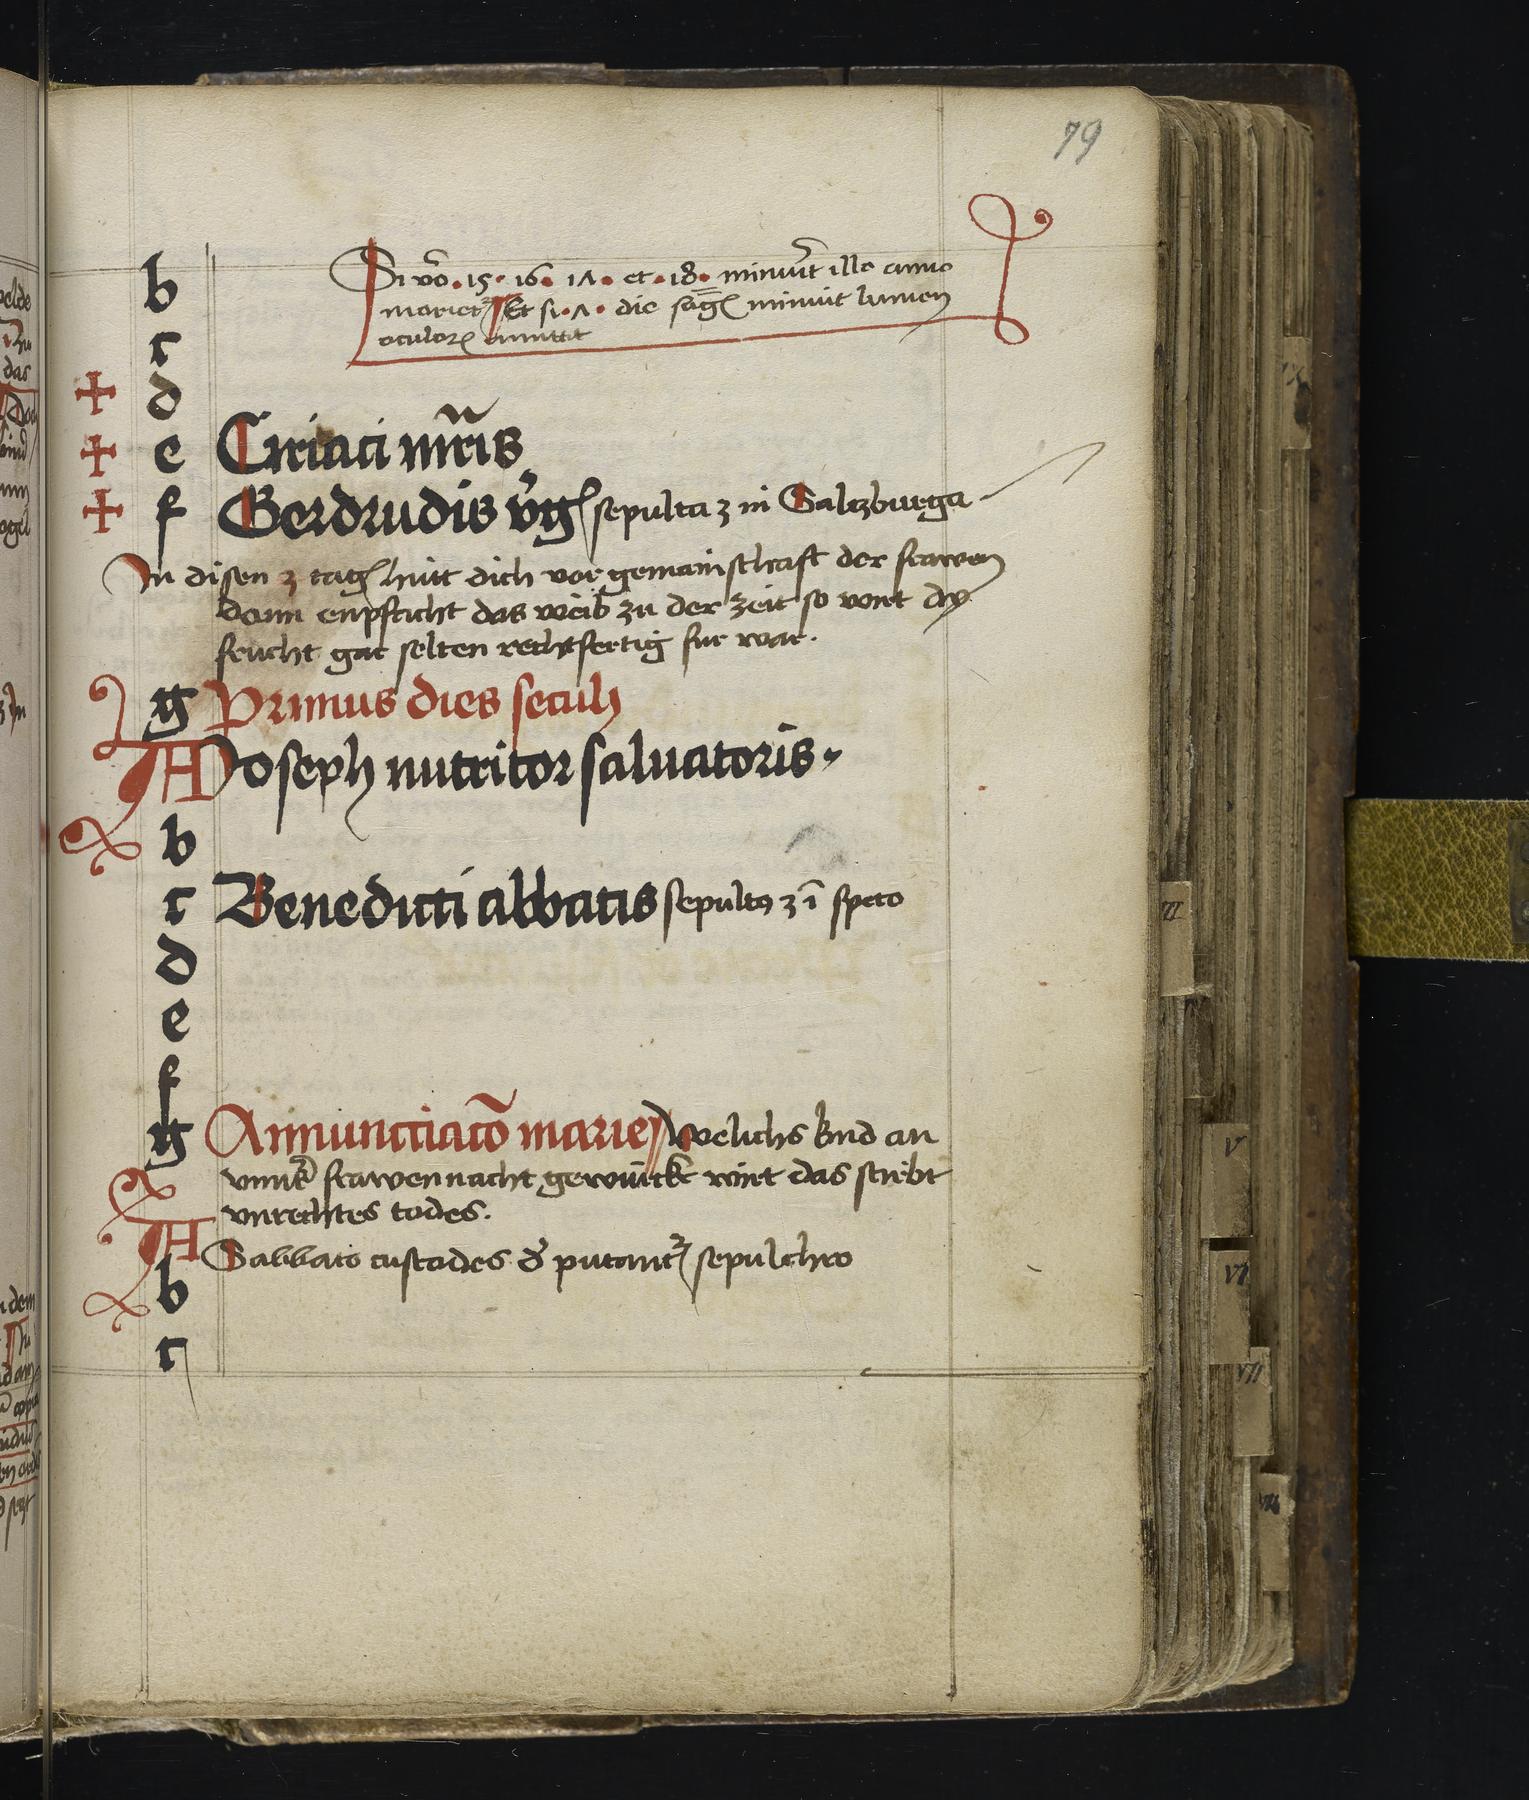 79
b Si vo͂ · 15 · 16 · 17 · et · 18 · minuu͂t illo anno
moriet͛ Et si · 7 · die sāgꝭ minuit lumen
c oculorꝭ amittit
d
e Ciriaci mr̃is
f Gerdrudis v̓gꝭ sepulta ꝫ in Saltzburga
In disen 3 tagꝭ hütt dich vor gemainschaft der frawen
dann enpfacht das weib zu der zeit so wirt dy
frucht gar selten rechtfertig fur war.
g Primus dies seculi
A Joseph nutritor saluatoris
b
c Benedicti abbatis sepultꝰ ꝫ ī spcto
d
e
f
g Annunctiacō marie Welichs kind an
frawen nacht wirt das stirbt
vnrechtes todes.
A Sabbato custodes putant͛ sepulchro
b
c
III
V
VI
VII